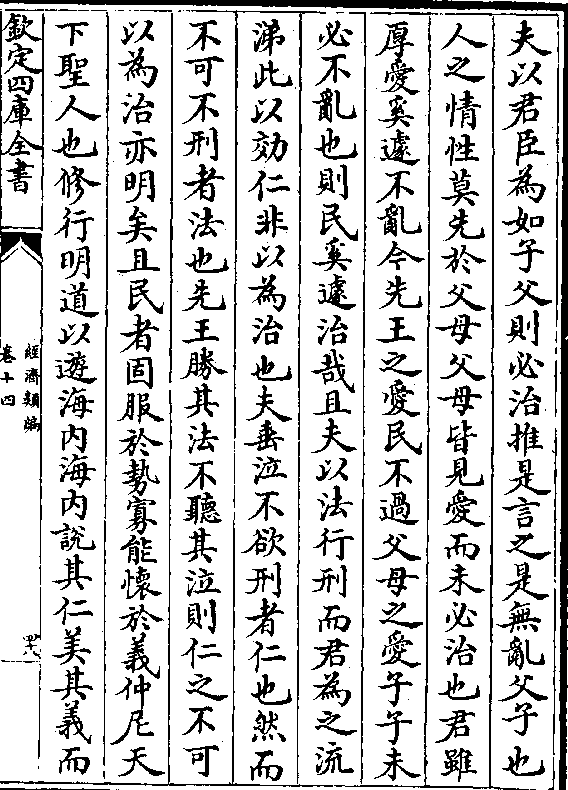 夫以君臣為如子父則必治推是言之是無亂父子也
人之情性莫先於父母父母皆見愛而未必治也君雖
厚愛奚遽不亂今先王之愛民不過父母之愛子子未
必不亂也則民奚遽治哉且夫以法行刑而君為之流
涕此以効仁非以為治也夫垂泣不欲刑者仁也然而
不可不刑者法也先王勝其法不聽其泣則仁之不可
以為治亦明矣且民者固服於勢寡能懷於義仲尼天
下聖人也修行明道以遊海內海內說其仁美其義而
欽定四庫全書
經濟類編
卷十四
四八